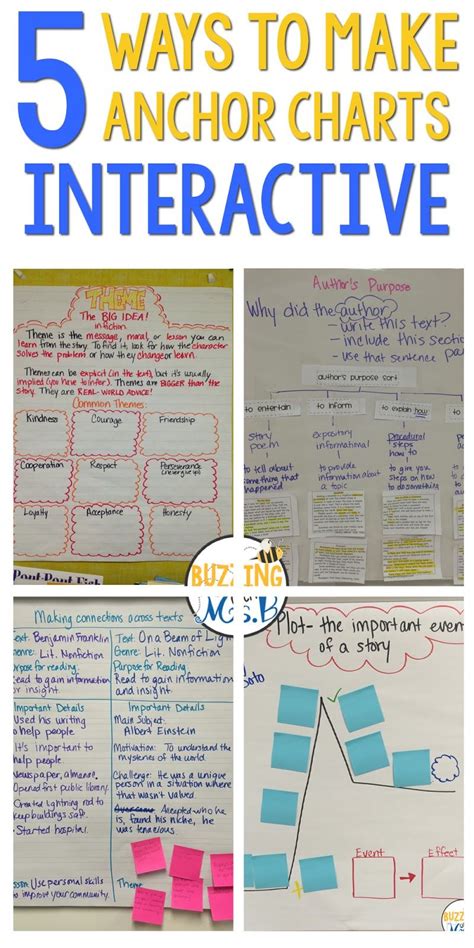 5 WAYS TO MAKE
ANCHOR CHARTS
INTERACTIVE
THEME
The BIG IDEA!
in fiction
Theme is the message, moral, or lesson you can
learn from the story. To find it, look for how the character
solves the problem or how they change or learn.
Themes can be explicit (in the text), but it's usually
implied (you have to infer). Themes are BIGGER than the
story. They are REAL-WORLD ADVICE!
Common Themes:
Kindness Courage Friendship
Cooperation Respect Perseverance
(never give up)
Loyalty Acceptance Honesty
Author's Purpose
Why did the author
- write this text?
- include this sectio
- use that sentence
pa
author's purpose sort
to entertain to inform to explain how
story
poem
to tell about
something that
happened
expository
informational
to provide
information about
a topic
Procedural
steps
how to
to give you
steps on how
to do something
BUZZING
Ms.B
Making connections across texts
ext: Benjamin Franklin
enre: Lit. Nonfiction
urpose for reading:
ead to gain information
or insight.
mportant Details
Used his writing
to help people
It's important to
help people.
Newspaper, almanac.
Opened first public library.
Created lightning rod to
keep buildings safe.
Started hospital.
sson: Use personal skills
to improve your community.
Text: On a Beam of Ligh
Genre: Lit. Nonfiction
Purpose for Reading:
Read to gain information
and insight.
Important Details
Main Subject:
Albert Einstein
Motivation: To understand the
mysteries of the world.
Challenge: He was a unique
person in a situation where
that wasn't valued.
Overcame: Accepted who he
is, found his niche, he
was tenacious.
Theme
Plot- the important even
of a story
Soto
Event Effect
BUZZ